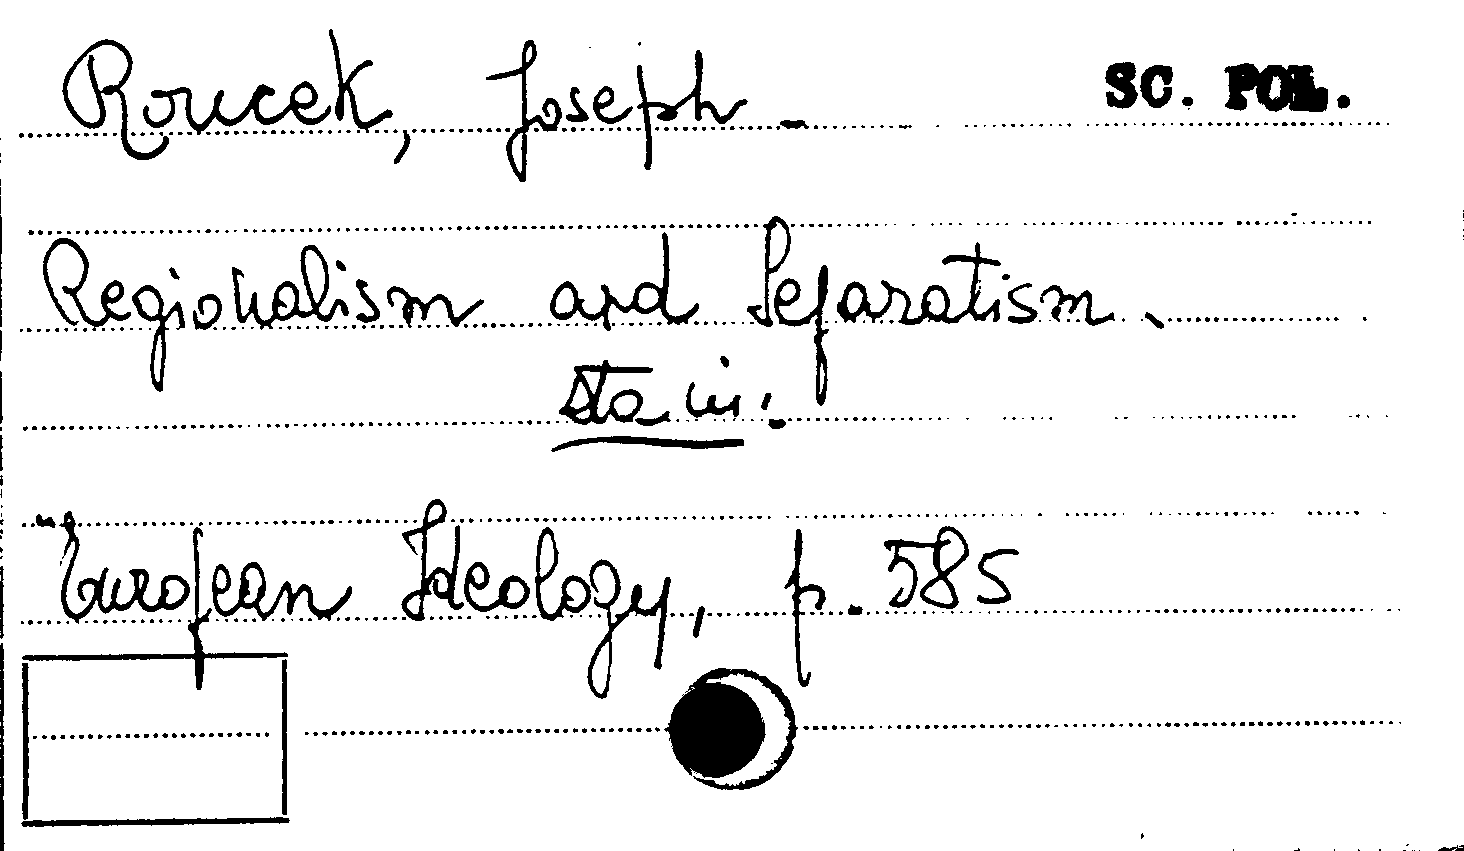 Roucek, Joseph - SC. POL.
Regionalism and Separatism.
sta in:
"European Ideology, p. 585